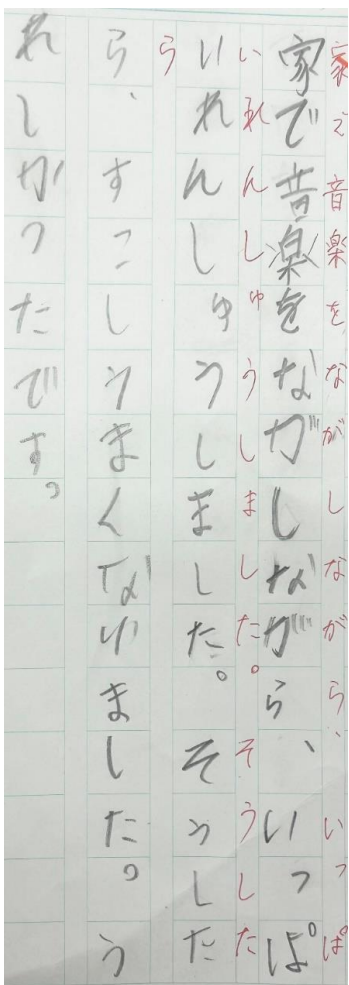 家で音楽をながしながら、いっぱ
家で音楽をながしながら、いっぱ
いれんしゅうしました。そうした
いれんしゅうしました。そうした
ら
ら、すこしうまくなりました。う
れしかったです。